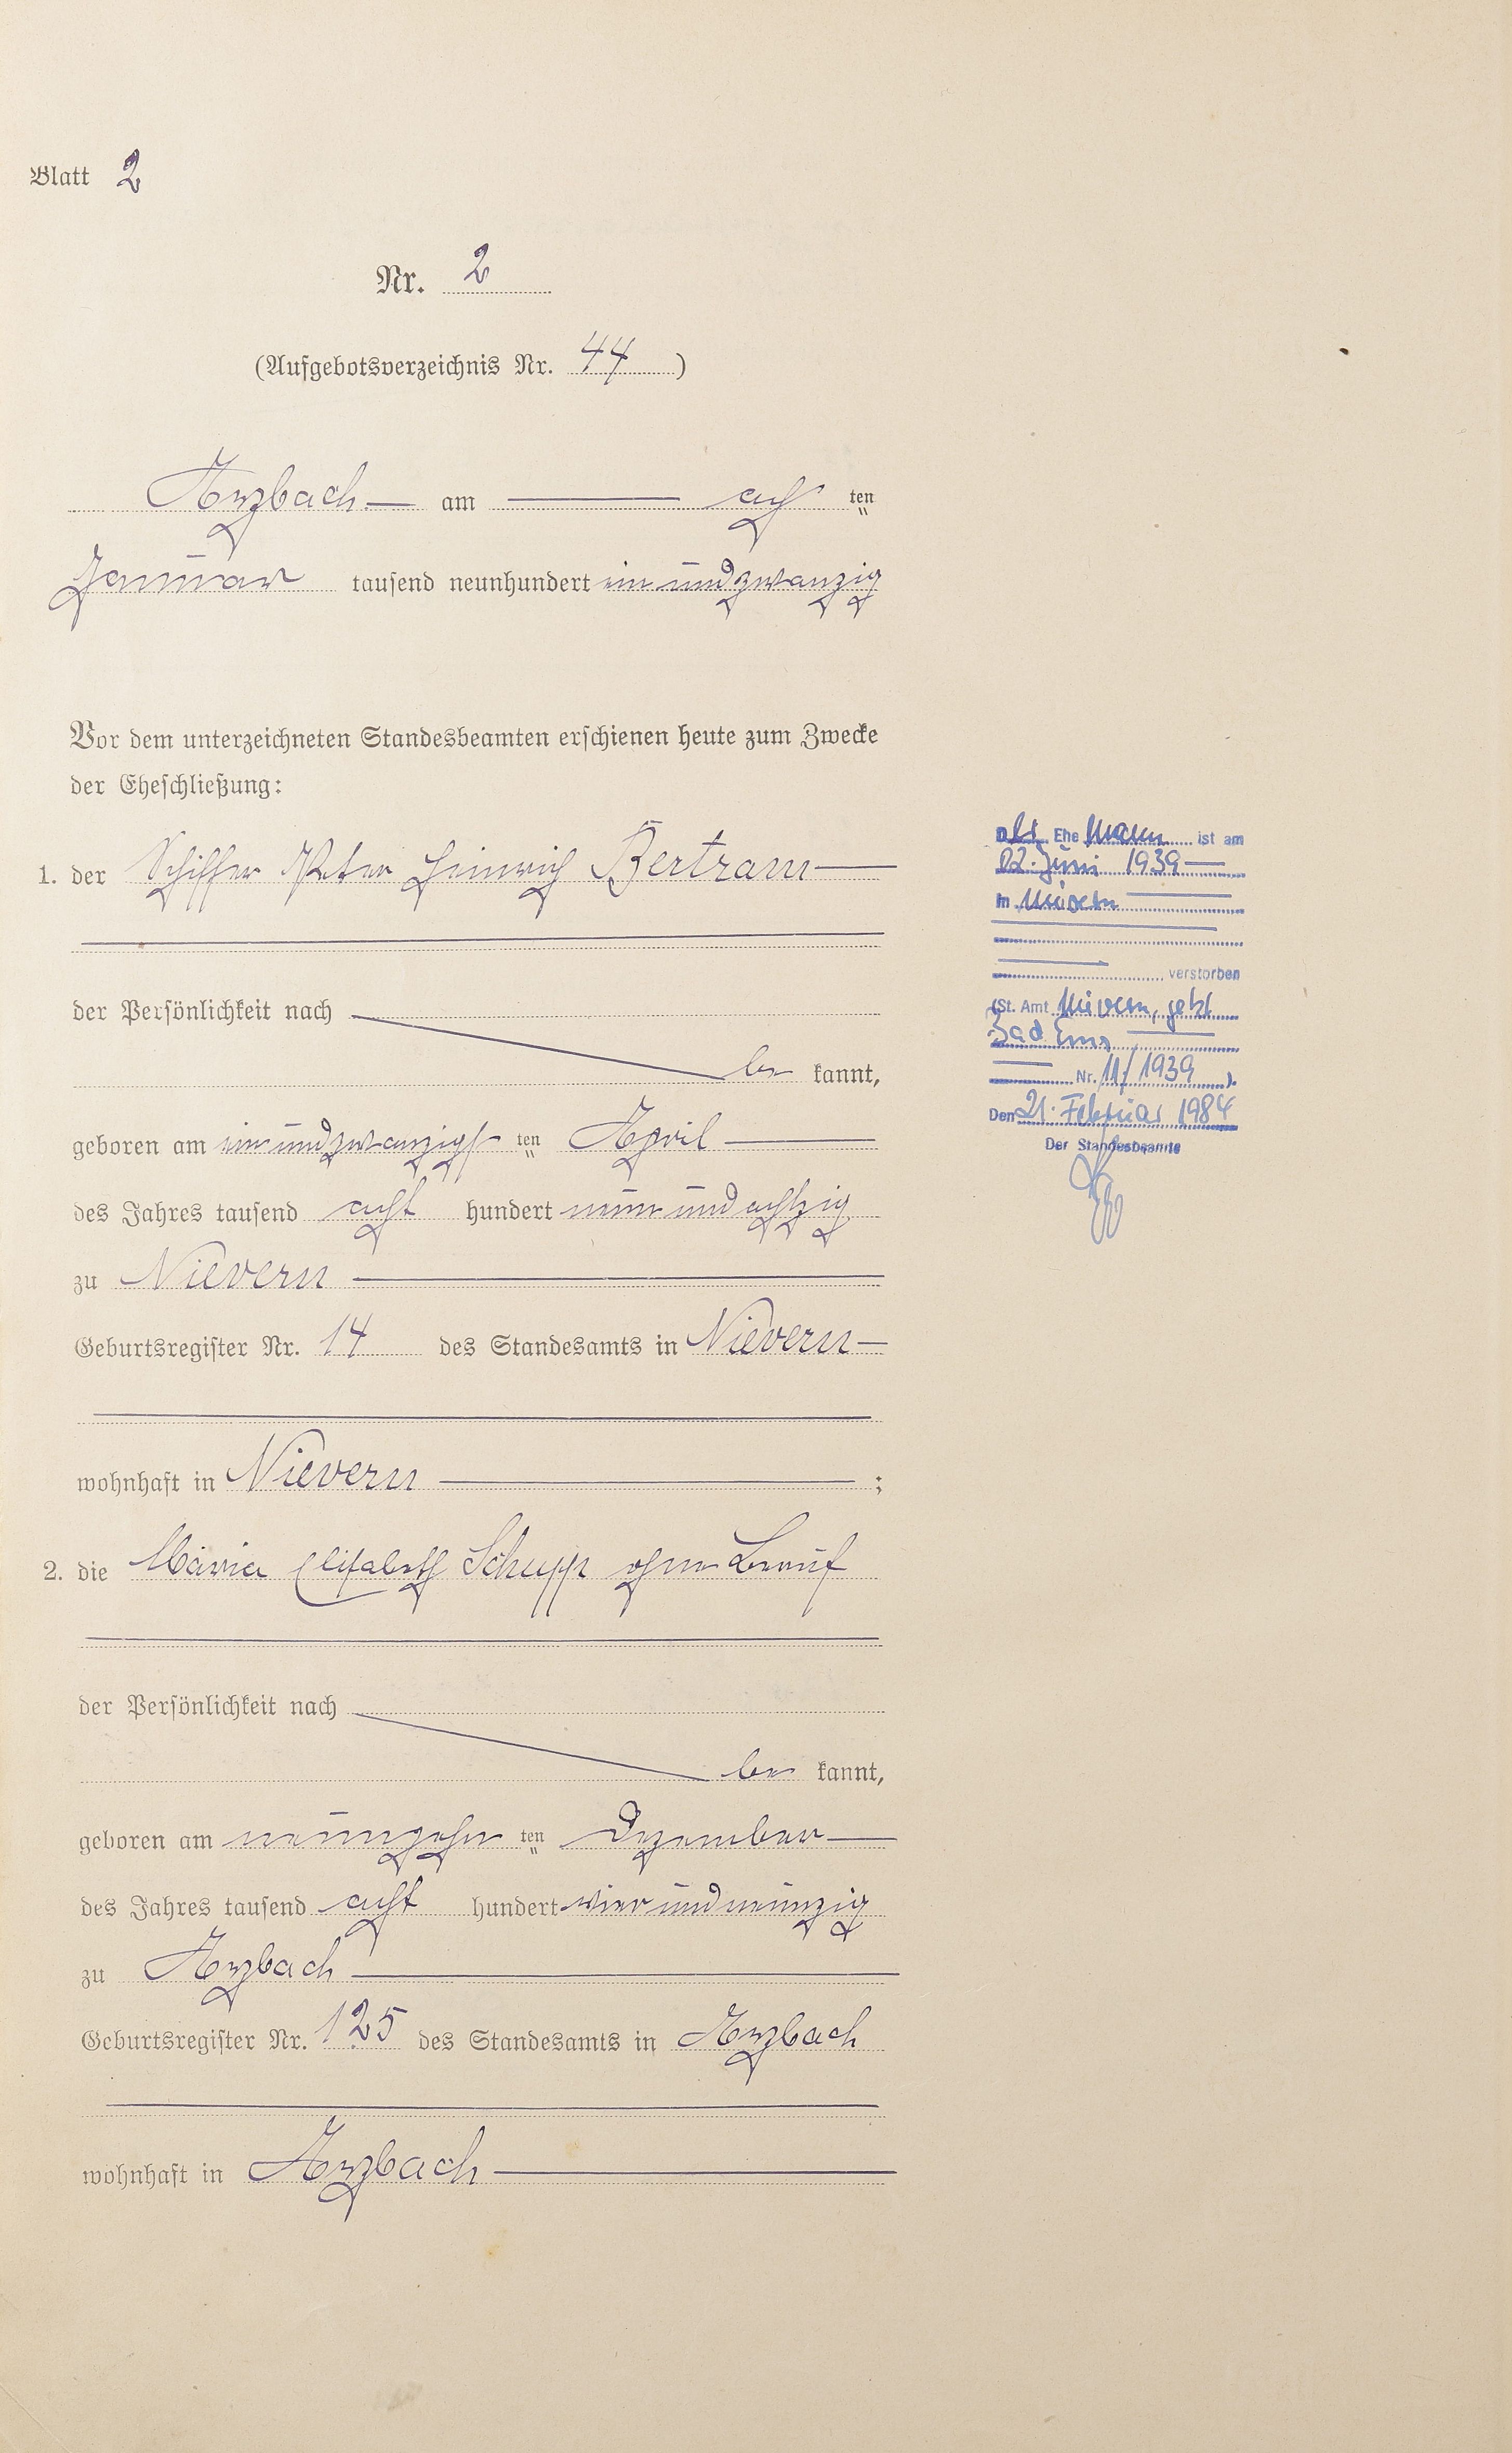 Blatt 2
Nr. 2
(Aufgebotsverzeichnis Nr. 44)
Arzbach am acht ten
Januar tausend neunhundert ein und zwanzig
Vor dem unterzeichneten Standesbeamten erschienen heute zum Zwecke
der Eheschließung:
1. der Schiffer Peter Heinrich Bertram
der Persönlichkeit nach
be kannt,
geboren am ein und zwanzigst ten April
des Jahres tausend acht hundert neun und achtzig
zu Nievern
Geburtsregister Nr. 14 des Standesamts in Nievern
wohnhaft in Nievern ;
2. die Maria Elisabeth Schupp ohne Beruf
der Persönlichkeit nach
be kannt,
geboren am neunzehn ten Dezember
des Jahres tausend acht hundert vier und neunzig
zu Arzbach
Geburtsregister Nr. 125 des Standesamts in Arzbach
wohnhaft in Arzbach
Ehe Mann ist am
22. Juni 1939
in Nievern
verstorben
(St. Amt Nievern, jetzt
Bad Ems
Nr. 11/1939 ).
Den 21. Februar 1984
Der Standesbeamte